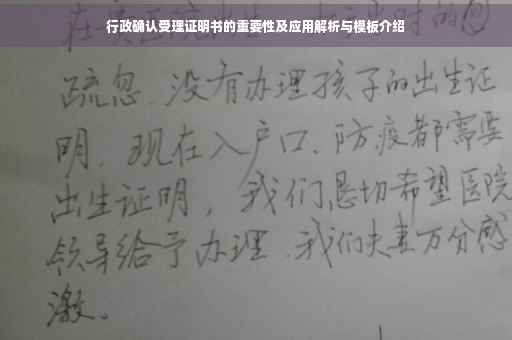 行政确认受理证明书的重要性及应用解析与模板介绍
疏忽.没有办理孩子的出生证
明.现在入户口、防疫都需要
出生证明，我们恳切希望医院
领导给予办理.我们夫妻万分感
激。